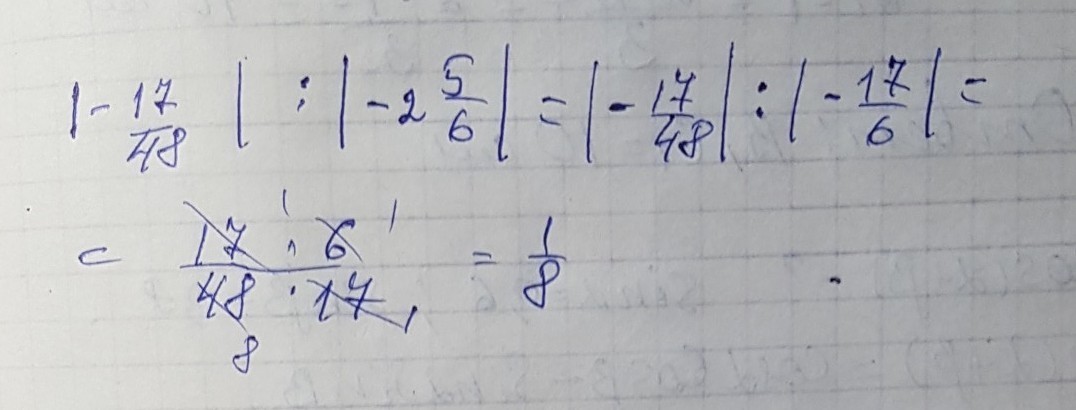 |-17/48| : |-2 5/6| = |-17/48| : |-17/6| =
= 17 · 6 / 48 · 17 = 1/8